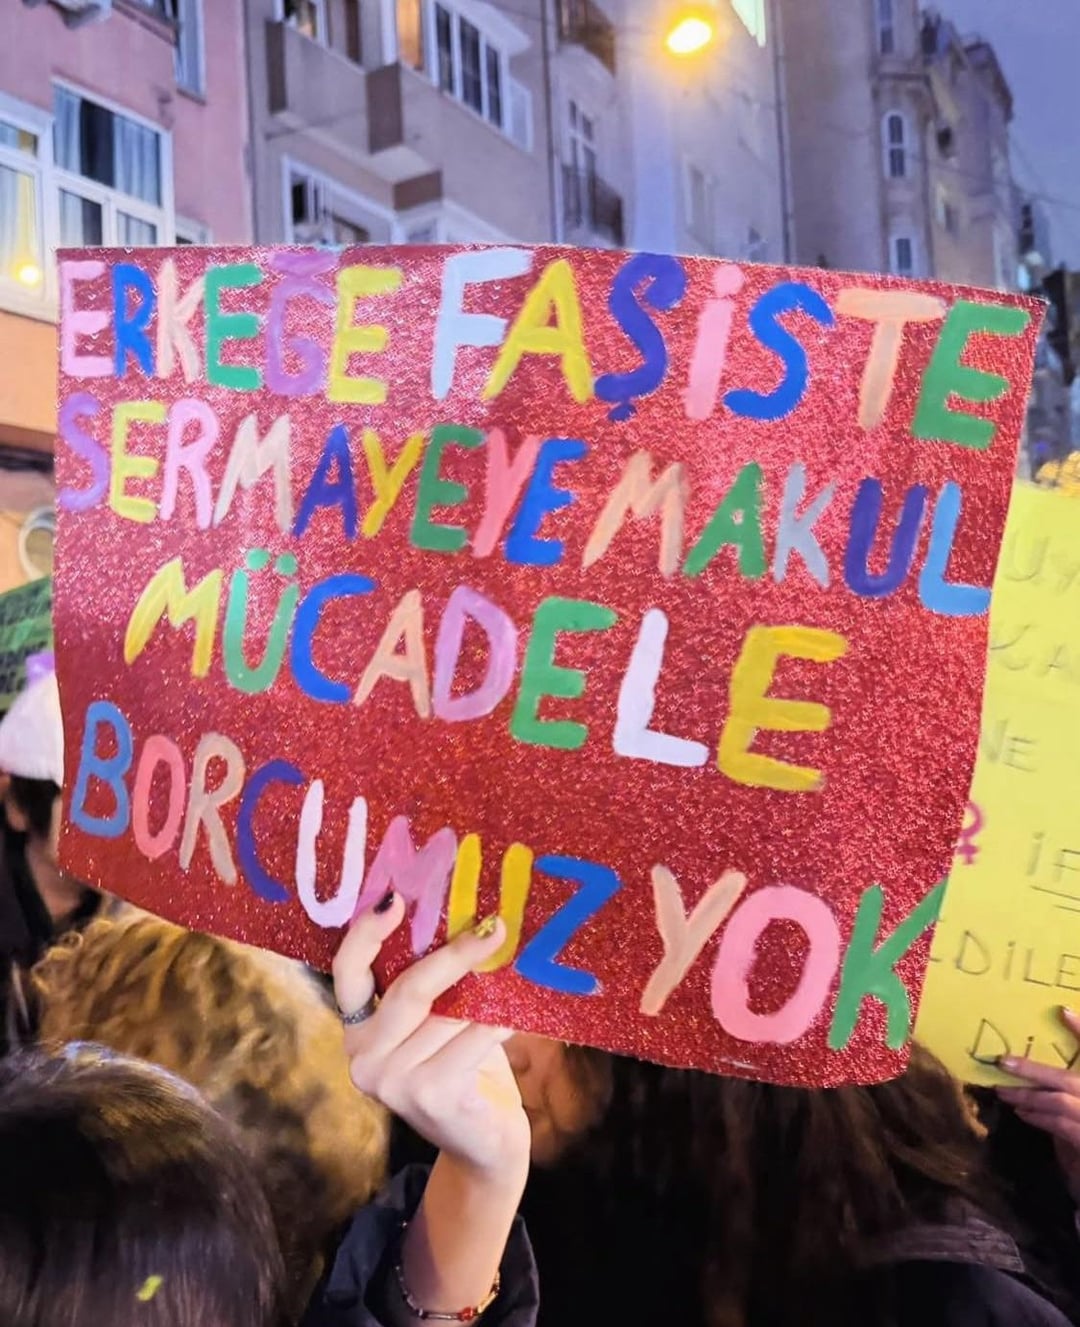 ERKEĞE FAŞiSTE
SERMAYEYE MAKUL
MÜCADELE
BORCUMUZ YOK
NE